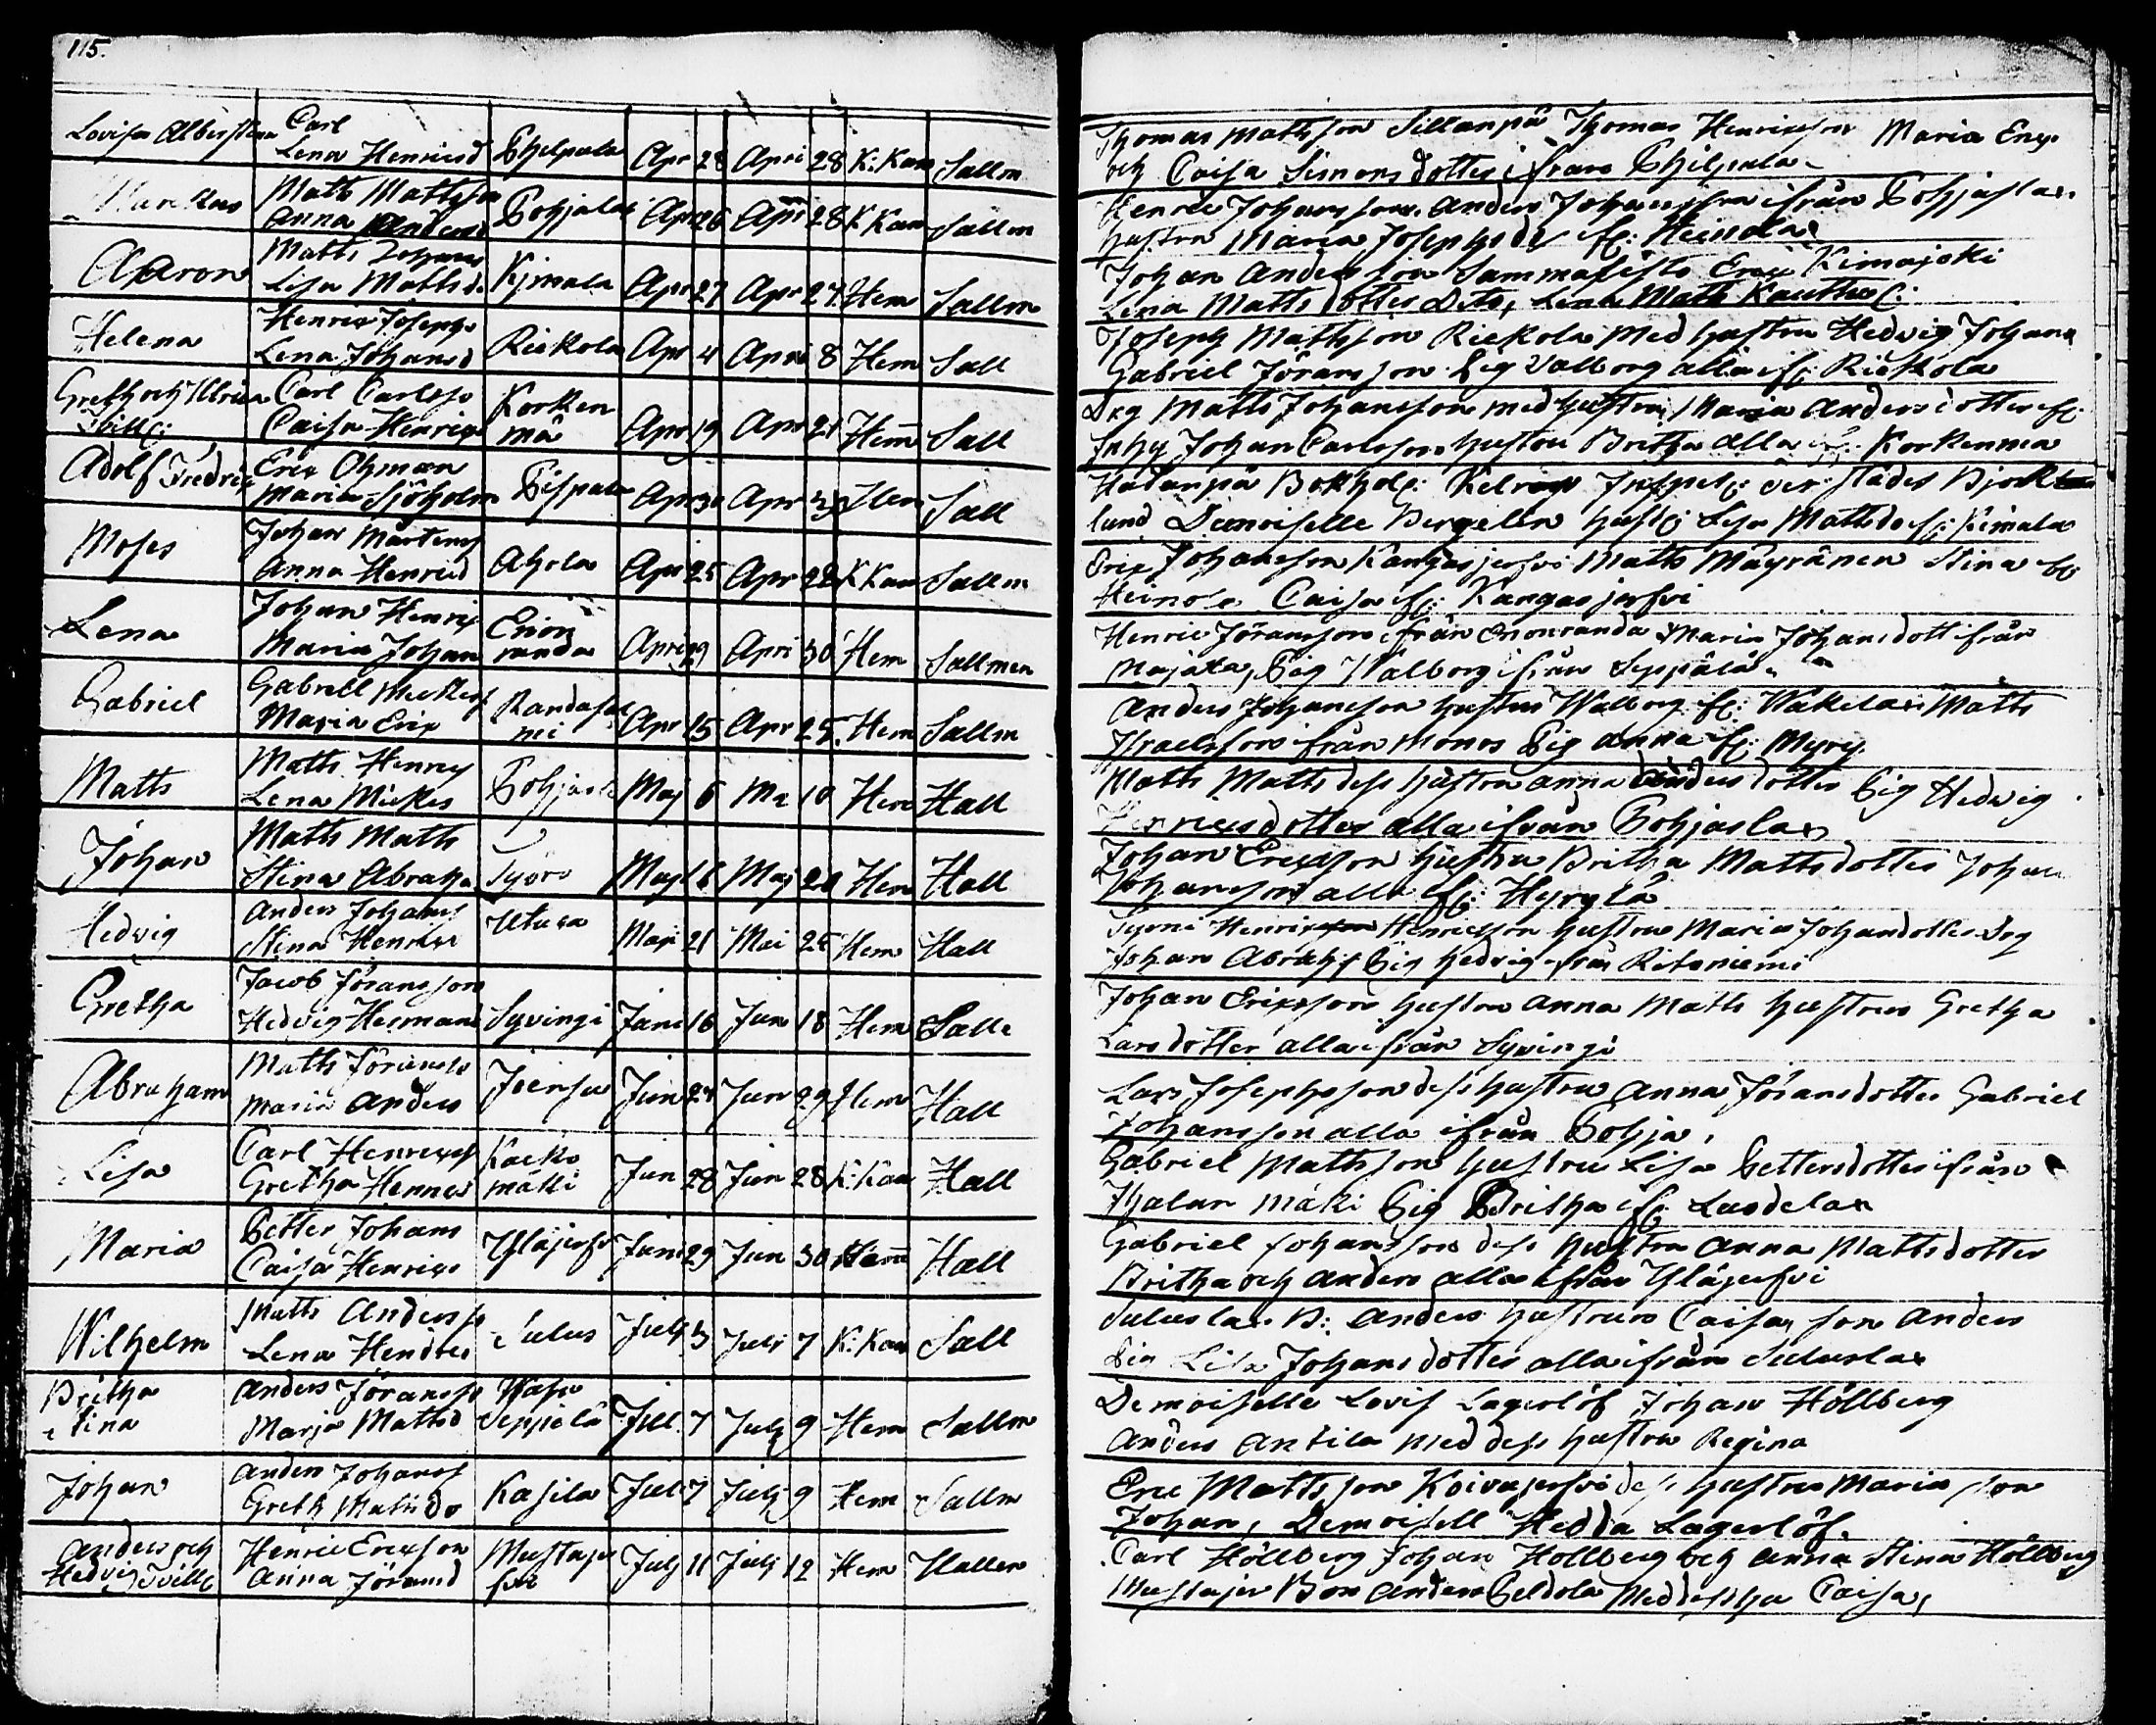 115.
Lovisa Albertina Carl
Lena Henricsd Philpula Apr 28 Apri 28 K: Kam Sallm
Marckus Matts Mattsson
Anna Andersd Pohjalax Apr 26 Apr 28 K Kam Sallm
Aaron Matts Johans
Lisa Mattsd. Kjmala Apr 27 Apr 27 Hem Sallm
Helena Henrix Josephs
Lena Johansd Riekola Apr 4 Apri 8 Hem Sall
Greth och Ulrica Carl Carlsso
Tvill: Caisa Henrix Korkenmä Apr 19 Apr 21 Hem Sall
Adolf Fredrix Erix Öhman
Maria Sjöholm Pispala Apr 30 Apr Hem Sall
Moses Johan Mårtens
Anna Henricsd Ahola Apr 25 Apr 28 K Kam Sallm
Lena Johan Henrix
Maria Johan Enonranda Apri 29 Apri 30 Hem Sallmen
Gabriel Gabriell
Maria Erix Randasalmi Apr 15 Apr 25. Hem Sallm
Matts Matts Henrix
Lena Mickes Pohjasl Maj 6 Ma 10 Hem Hall
Johan Matts Matts
Stina Abraha Maj 18 Maj 20 Hem Hall
Hedwig Anders Johans
Stina Henrix Utula Maji 21 Mai 25 Hem Hall
Gretha Jacob Göransson
Hedvig Hermans Syvingi Juni 16 Jun 18 Hem Salle
Abraham Matts Göransso
Maria Anders Joensu Jun 24 Jun 29 Hem Hall
Lisa Carl Henricss
Gretha Hennes Kockomäki Jun 28 Jun 28 K: Kam Hall
Maria Petter Johans
Caisa Henrix Yläjerfv Juni 29 Jun 30 Hem Hall
Wilhelm Matts Anderss
Lena Hendres Sulus July 3 July 7 K: Kam Sall
Britha Anders Göranss
Stina Marja Mattsd Seppälä Jull. 7 July 9 Hem Sallm
Johan Anders Johanss
Greth Mattsdo Kasila Jul 7 July 9 Hem Sallm
Anders och Henric Ericsson
Hedvig Tvill: Anna Göransd Mustajerfvi July 11 July 12 Hem Hallen
Thomas Mattsson Sillanpä Thomas Henricsson Maria Erix
och Caisa Simonsdotter ifrån Philpula
Henric Johansson. Anders Johansson ifrån Pohjaslax
hustru Maria Josephsd if: Heinola
Johan Andersson Sammalisto Erix Kimajoki
Lena Mattsdotter Dito, Lena Matts
Joseph Mattsson Riekola Med hustru Hedvig Johans
Gabriel Göransson Pig Valborg alla if: Riekola
Drg Matts Johansson med hustru Maria Andersdotter if:
Inhy Johan Carlsson hustru Britha alla if: Korkenma
Björk
lund Demoiselle Bergelin hust: Lisa Mattsdo if: Kimala
Erix Johansson Kangasjerfvi Matts Mäyränen Stina if:
Heinola Caisa if: Kangasjerfvi
Henric Göransson ifrån Enonranda Maria Johansdott ifrån
Majala, Pig Walborg ifrån Seppälä
Anders Johansson hustru Walborg if: Matts
Israelsson ifrån Pig Anna if: Myry
Matts Matts dess hustru Anna Andersdotter Pig Hedvig
Henricsdotter alla ifrån Pohjaslax
Johan Ericsson hustru Britha Mattsdotter Johan
Johansson alla if: Hyrylä
Henricsson hustru Maria Johansdotter Drg
Johan Abrahs Pig Hedvig ifrån Ritoniemi
Johan Ericsson hustru Anna Matts hustru Gretha
Larsdotter alla ifrån Syvingi
Lars Josephsson dess hustru Anna Göransdotter Gabriel
Johansson alla ifrån Pohja,
Gabriel Mattsson hustru Lisa Pettersdotter ifrån
mäki Pig Britha if:
Gabriel Johansson dess hustru Anna Mattsdotter
Britha och Anders alla ifrån Yläjerfvi
Suluslax B: Anders hustru Caisa, son Anders
Pig Lisa Johansdotter alla ifrån Suluslax
Demoiselle Lovis Lagerlöf Johan Höllberg
Anders Antila Med dess hustru Regina
Eric Mattsson Koivujerfvi dess hustru Maria son
Johan, Demoisell Hedda Lagerlöf.
Carl Höllberg Johan Hollberg och Anna Stina Hölberg
Mustajer Bon Anders Peldola Med dess hu Caisa,